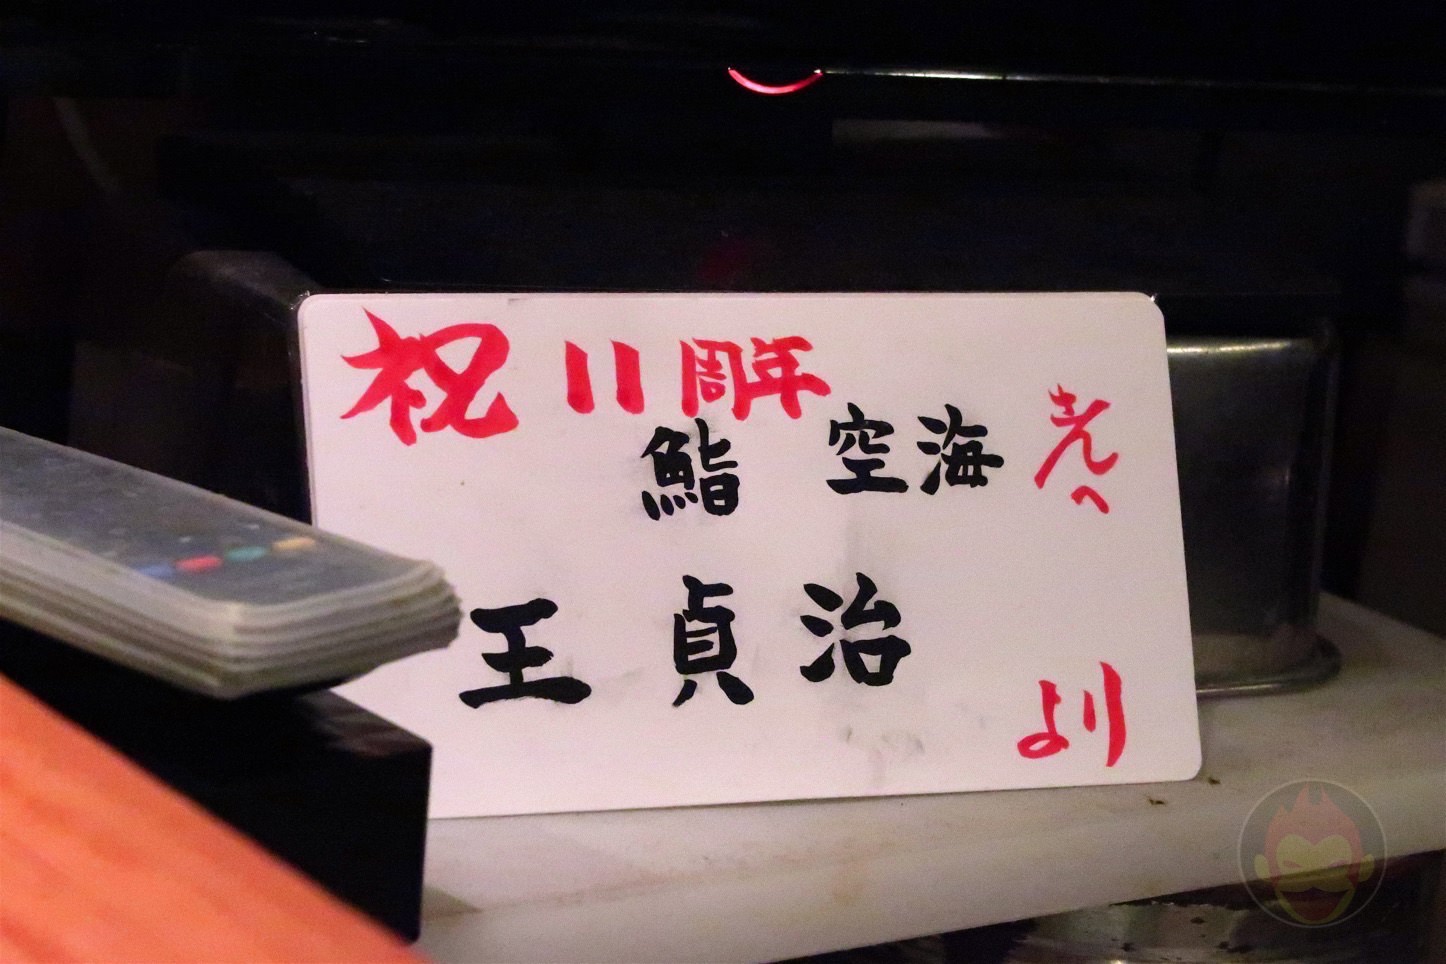 祝 11周年
鮨 空海 さんへ
王 貞治 より